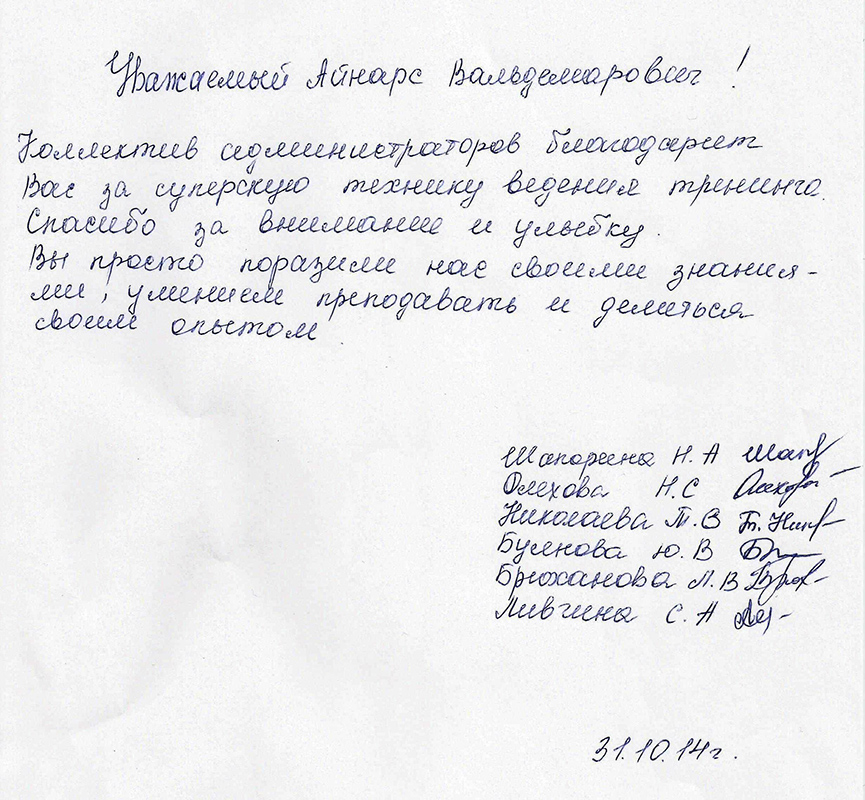 Уважаемый Айнарс Вальдемарович !
Коллектив администраторов благодарит
Вас за суперскую технику ведения тренинга.
Спасибо за внимание и улыбку.
Вы просто поразили нас своими знания-
ми, умением преподавать и делиться
своим опытом
Шапорина Н. А
Олехова Н. С
Николаева Т. В
Буянова Ю. В
Брюханова Л. В
Ливгина С. А
31.10.14г.